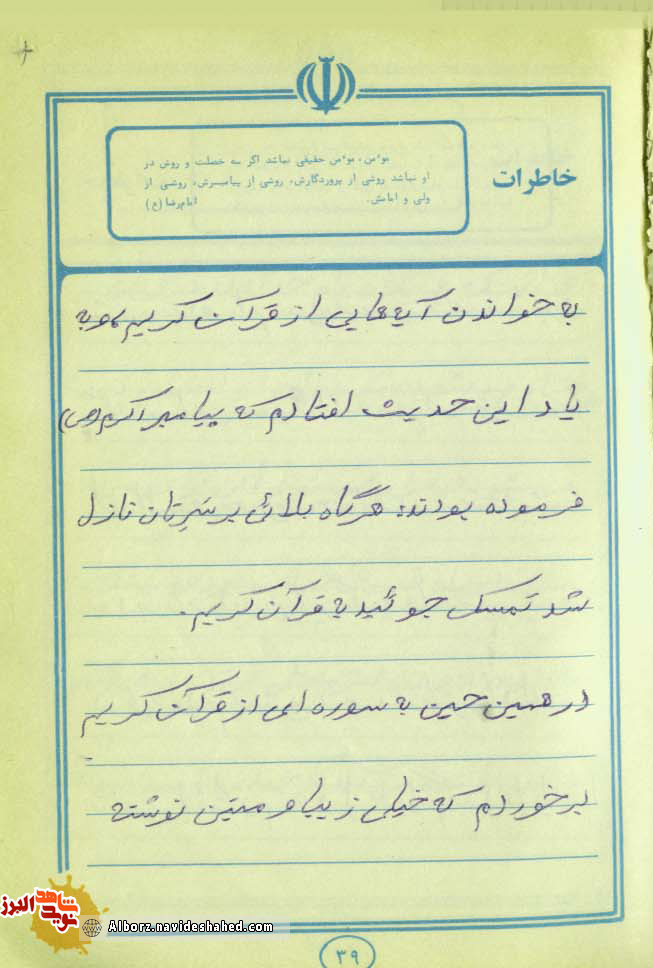 خاطرات
موءمن، موءمن حقیقی نباشد اگر سه خصلت و روش در
او نباشد روشی از پروردگارش، روشی از پیامبرش، روشی از
ولی و امامش. امام‌رضا (ع)
به خواندن آیه‌هایی از قرآن کریم، و به
یاد این حدیث افتادم که پیامبر اکرم (ص)
فرموده بودند: هرگاه بلائی بر سَرِتان نازل
شد تمسک جوئید به قرآن کریم.
در همین حین به سوره‌ای از قرآن کریم
برخوردم که خیلی زیبا و متین نوشته
۳۹
نوید شاهد البرز
Alborz.navideshahed.com